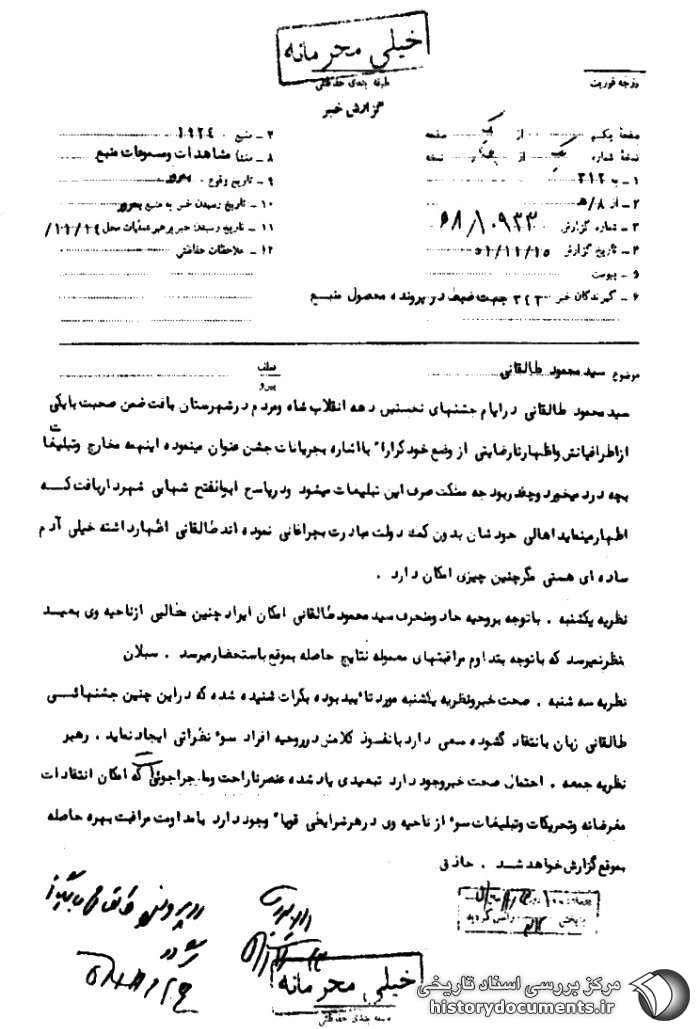 خیلی محرمانه
طبقه بندی حفاظتی
درجه فوریت
گزارش خبر
صفحه یکم از یک صفحه
نسخه شماره یک از نسخه
۱ - به ۳۱۲
۲ - از ۸/ ه‍
۳ - شماره گزارش
۴ - تاریخ گزارش ۵۱/۱۱/۱۵
۵ - پیوست
۶ - گیرندگان خبر ۳۴۳ جهت ضبط در پرونده محصول منبع
۷ - منبع ۱۹۲۴
۸ - منشا مشاهدات ومسموعات منبع
۹ - تاریخ وقوع بمرور
۱۰ - تاریخ رسیدن خبر به منبع بمرور
۱۱ - تاریخ رسیدن خبر برهبر عملیات محل
۱۲ - ملاحظات حفاظتی
موضوع سید محمود طالقانی
عطف
پیرو
سید محمود طالقانی در ایام جشنهای نخستین دهه انقلاب شاه ومردم در شهرستان بافت ضمن صحبت با یکی
از اطرافیانش واظهار نارضایتی از وضع خود کرارا" با اشاره بجریانات جشن عنوان مینموده اینهمه مخارج وتبلیغات
بچه درد میخورد وچقدر بودجه مملکت صرف این تبلیغات میشود ودر پاسخ ابوالفتح شهابی شهردار بافت کـه
اظهار مینماید اهالی خودشان بدون کمک دولت مبادرت بچراغانی نموده اند طالقانی اظهار داشته خیلی آدم
ساده ای هستی مگر چنین چیزی امکان دارد .
نظریه یکشنبه . با توجه بروحیه حاد ومنحرف سید محمود طالقانی امکان ایراد چنین مطالبی از ناحیه وی بعیـد
بنظر نمیرسد که با توجه بتداوم مراقبتهای معموله نتایج حاصله بموقع باستحضار میرسد . سبلان
نظریه سه شنبه . صحت خبر ونظریه یکشنبه مورد تائید بوده بکرات شنیده شده که در این چنین جشنهائـی
طالقانی زبان بانتقاد گشوده سعی دارد با نفوذ کلامش در روحیه افراد سوء نظراتی ایجاد نماید . رهبر
نظریه جمعه . احتمال صحت خبر وجود دارد تبعیدی یاد شده عنصر ناراحت وماجراجوئی که امکان انتقادات
مغرضانه وتحریکات وتبلیغات سوء از ناحیه وی در هر شرایطی قویا" وجود دارد با مداومت مراقبت بهره حاصله
بموقع گزارش خواهد شـد . حاذق
خیلی محرمانه
طبقه بندی حفاظتی
مرکز بررسی اسناد تاریخی
historydocuments.ir